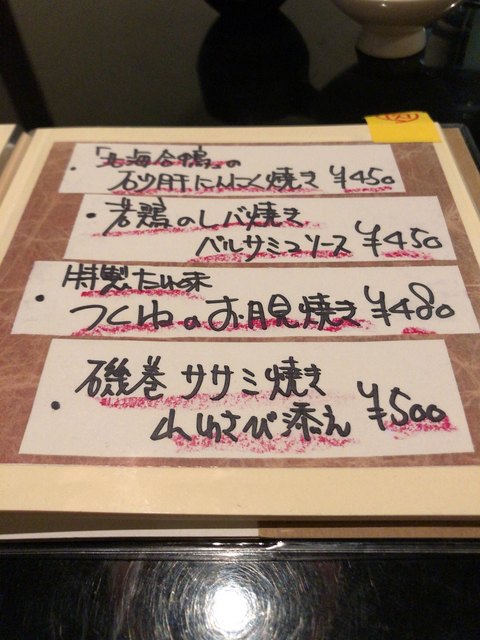 「北海合鴨」の
石少肝にんにく焼き ¥450
若鶏のレバ焼き
バルサミコソース ¥450
特製たれ味
つくねのお月見焼き ¥480
磯巻ササミ焼き
山わさび添え ¥500